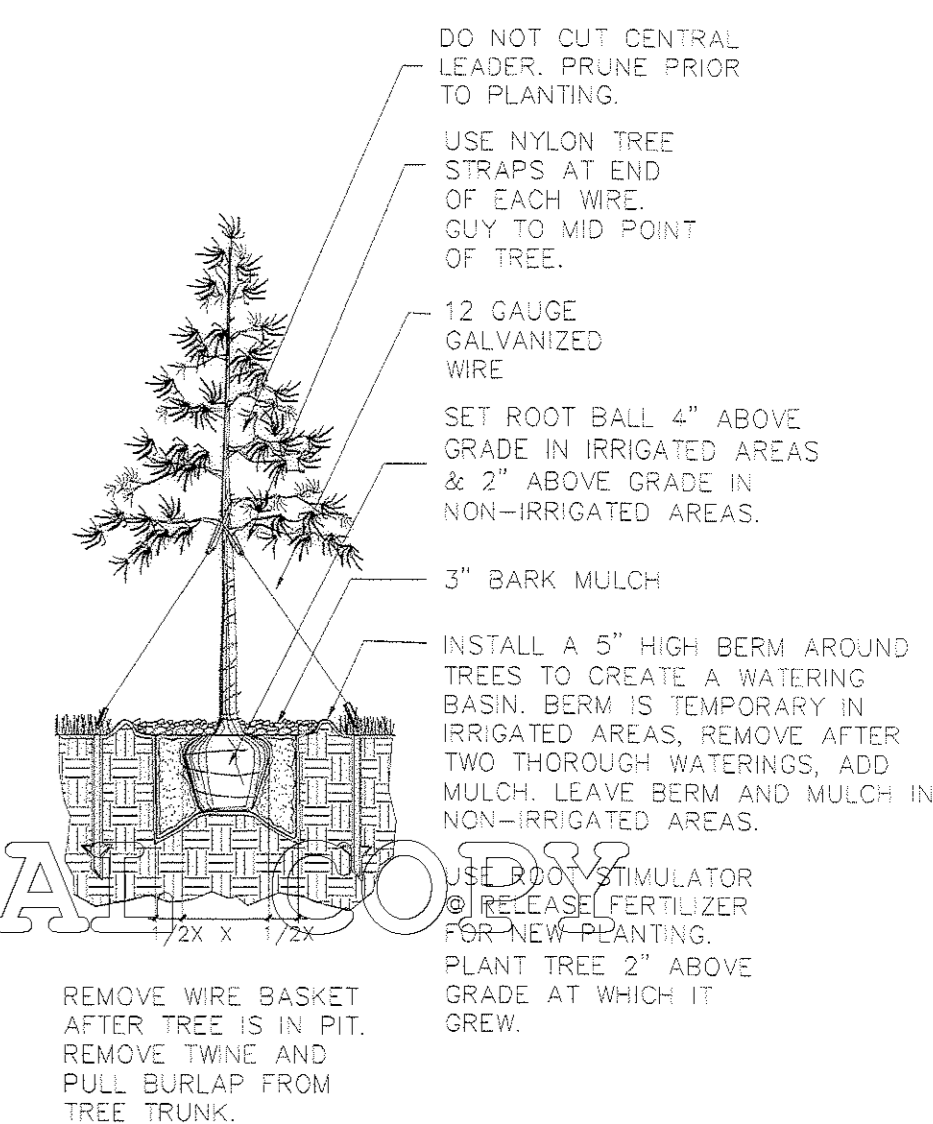 DO NOT CUT CENTRAL
LEADER. PRUNE PRIOR
TO PLANTING.
USE NYLON TREE
STRAPS AT END
OF EACH WIRE.
GUY TO MID POINT
OF TREE.
12 GAUGE
GALVANIZED
WIRE
SET ROOT BALL 4" ABOVE
GRADE IN IRRIGATED AREAS
& 2" ABOVE GRADE IN
NON-IRRIGATED AREAS.
3" BARK MULCH
INSTALL A 5" HIGH BERM AROUND
TREES TO CREATE A WATERING
BASIN. BERM IS TEMPORARY IN
IRRIGATED AREAS, REMOVE AFTER
TWO THOROUGH WATERINGS, ADD
MULCH. LEAVE BERM AND MULCH IN
NON-IRRIGATED AREAS.
AL COPY
USE ROOT STIMULATOR
@ RELEASE FERTILIZER
FOR NEW PLANTING.
PLANT TREE 2" ABOVE
GRADE AT WHICH IT
GREW.
1/2X X 1/2X
REMOVE WIRE BASKET
AFTER TREE IS IN PIT.
REMOVE TWINE AND
PULL BURLAP FROM
TREE TRUNK.